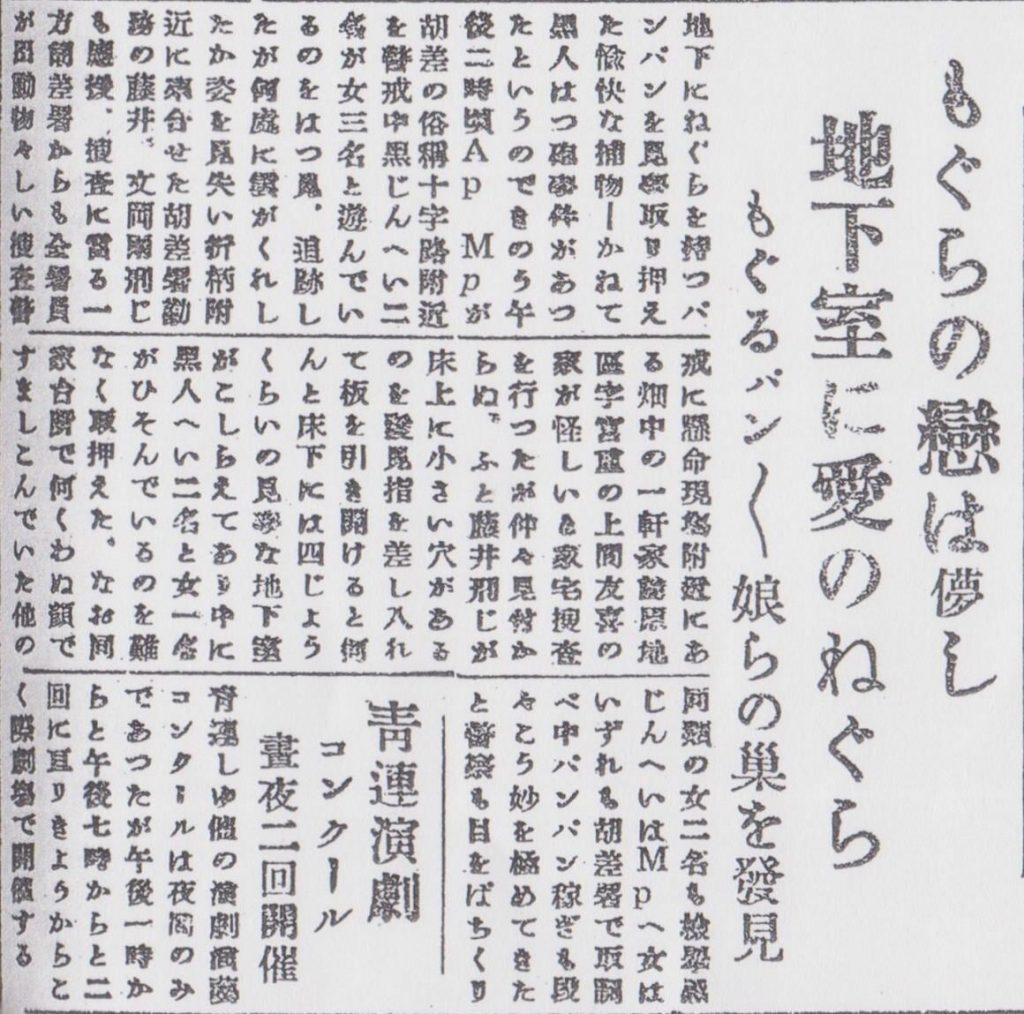 もぐらの戀は儚し
地下室に愛のねぐら
もぐるパン〱娘らの巣を發見
地下にねぐらを持つパ
ンパンを見事取り押え
た愉快な捕物ーかねて
黒人はつ砲事件があつ
たというのできのう午
後二時頃Ap Mpが
胡差の俗稱十字路附近
を警戒中黒じんへい二
名が女三名と遊んでい
るのをはつ見、追跡し
たが何處に雲がくれし
たか姿を見失い折柄附
近に來合せた胡差署勤
務の藤井、文岡兩刑じ
も應援、搜査に當る一
方胡差署からも全署員
が出動物々しい搜査警
戒に懸命現場附近にあ
る畑中の一軒家諸見地
區字宮里の上間友喜の
家が怪しいと家宅搜査
を行つたが仲々見付か
らぬ、ふと藤井刑じが
床上に小さい穴がある
のを發見指を差し入れ
て板を引き開けると何
んと床下には四じよう
くらいの見事な地下室
がこしらえてあり中に
黒人へい二名と女一名
がひそんでいるのを難
なく取押えた、なお同
家台所で何くわぬ顔で
すましこんでいた他の
同類の女二名も檢擧黒
じんへいはMpへ女は
いずれも胡差署で取調
べ中パンパン稼ぎも段
々こう妙を極めてきた
と警察も目をぱちくり
靑連演劇
コンクール
晝夜二回開催
靑連しゆ催の演劇
コンクールは夜間のみ
であつたが午後一時か
らと午後七時からと二
回に亘りきようからと
く劇場で開催する